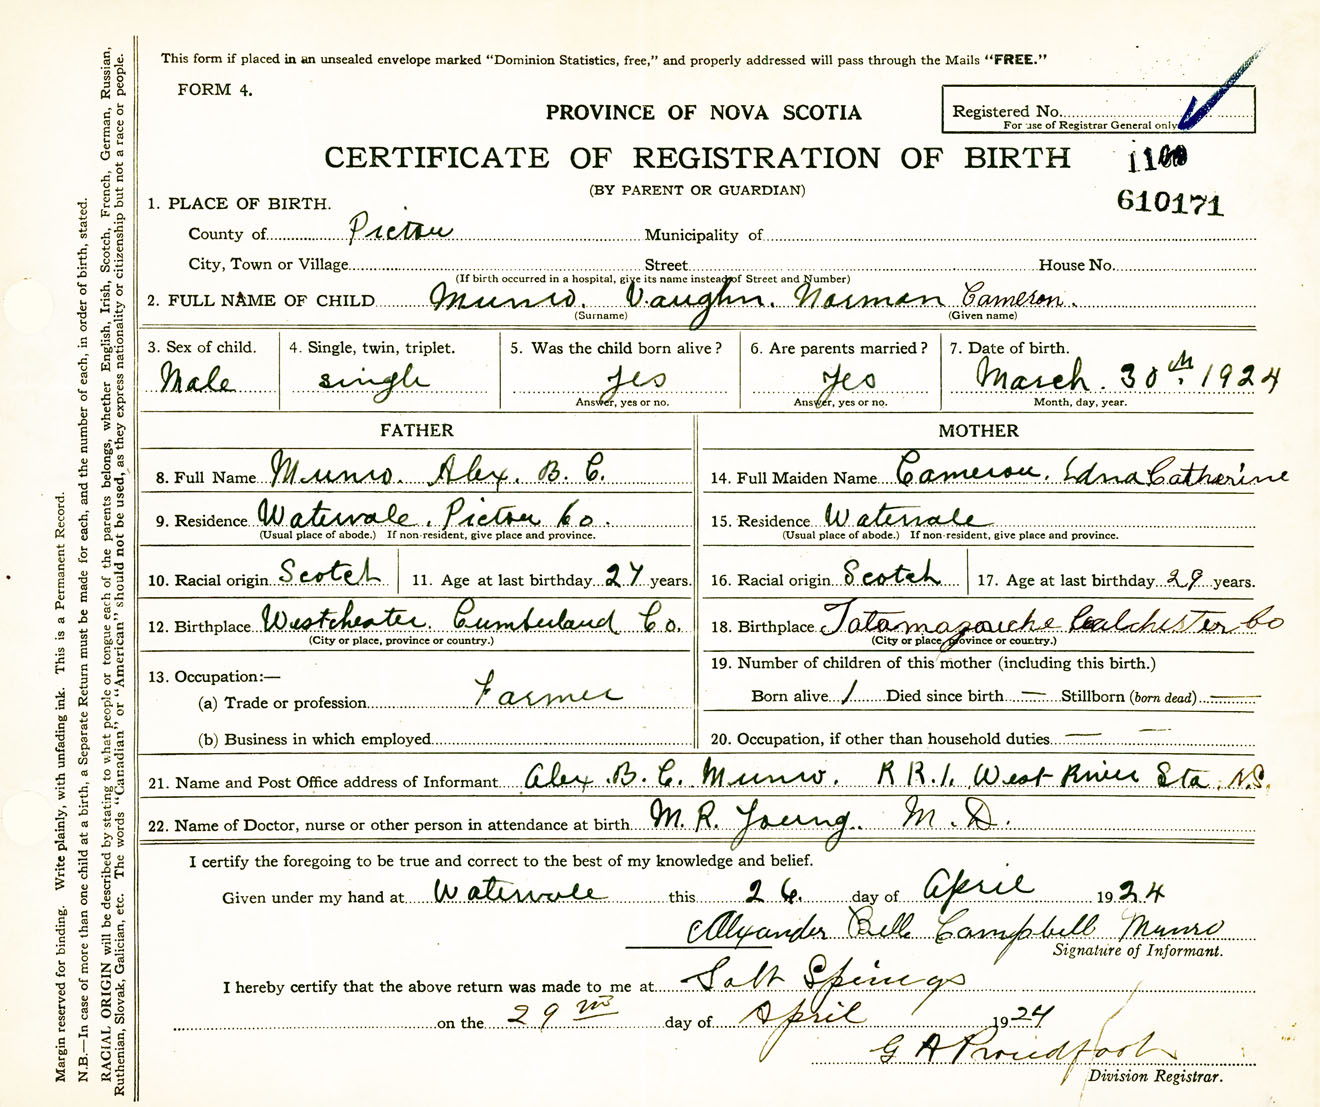 This form if placed in an unsealed envelope marked "Dominion Statistics, free," and properly addressed will pass through the Mails "FREE."
FORM 4.
PROVINCE OF NOVA SCOTIA
Registered No.
For use of Registrar General only
CERTIFICATE OF REGISTRATION OF BIRTH
(BY PARENT OR GUARDIAN)
610171
1. PLACE OF BIRTH.
County of Pictou Municipality of
City, Town or Village Street House No.
(If birth occurred in a hospital, give its name instead of Street and Number)
2. FULL NAME OF CHILD Munro. Vaughn. Norman Cameron.
(Surname) (Given name)
3. Sex of child. 4. Single, twin, triplet. 5. Was the child born alive? 6. Are parents married? 7. Date of birth.
Male single yes yes March. 30th. 1924
Answer, yes or no. Answer, yes or no. Month, day, year.
FATHER MOTHER
8. Full Name Munro. Alex. B. C. 14. Full Maiden Name Cameron. Edna Catherine
9. Residence Watervale. Pictou Co. 15. Residence Watervale
(Usual place of abode.) If non-resident, give place and province. (Usual place of abode.) If non-resident, give place and province.
10. Racial origin Scotch 11. Age at last birthday 27 years. 16. Racial origin Scotch 17. Age at last birthday 29 years.
12. Birthplace Westchester. Cumberland Co. 18. Birthplace Tatamagouche Colchester Co
(City or place, province or country.) (City or place, province or country.)
13. Occupation:— 19. Number of children of this mother (including this birth.)
(a) Trade or profession Farmer Born alive 1 Died since birth — Stillborn (born dead) —
(b) Business in which employed 20. Occupation, if other than household duties — —
21. Name and Post Office address of Informant Alex. B. C. Munro. R R.1. West River Sta. N.S.
22. Name of Doctor, nurse or other person in attendance at birth M. R. Young. M. D.
I certify the foregoing to be true and correct to the best of my knowledge and belief.
Given under my hand at Watervale this 26. day of April 1924
Alexander Bell Campbell Munro
Signature of Informant.
I hereby certify that the above return was made to me at Salt Springs
on the 29 day of April 1924
G A Proudfoot
Division Registrar.
Margin reserved for binding. Write plainly, with unfading ink. This is a Permanent Record.
N.B.—In case of more than one child at a birth, a Separate Return must be made for each, and the number of each, in order of birth, stated.
RACIAL ORIGIN will be described by stating to what people or tongue each of the parents belongs, whether English, Irish, Scotch, French, German, Russian,
Ruthenian, Slovak, Galician, etc. The words "Canadian" or "American" should not be used, as they express nationality or citizenship but not a race or people.